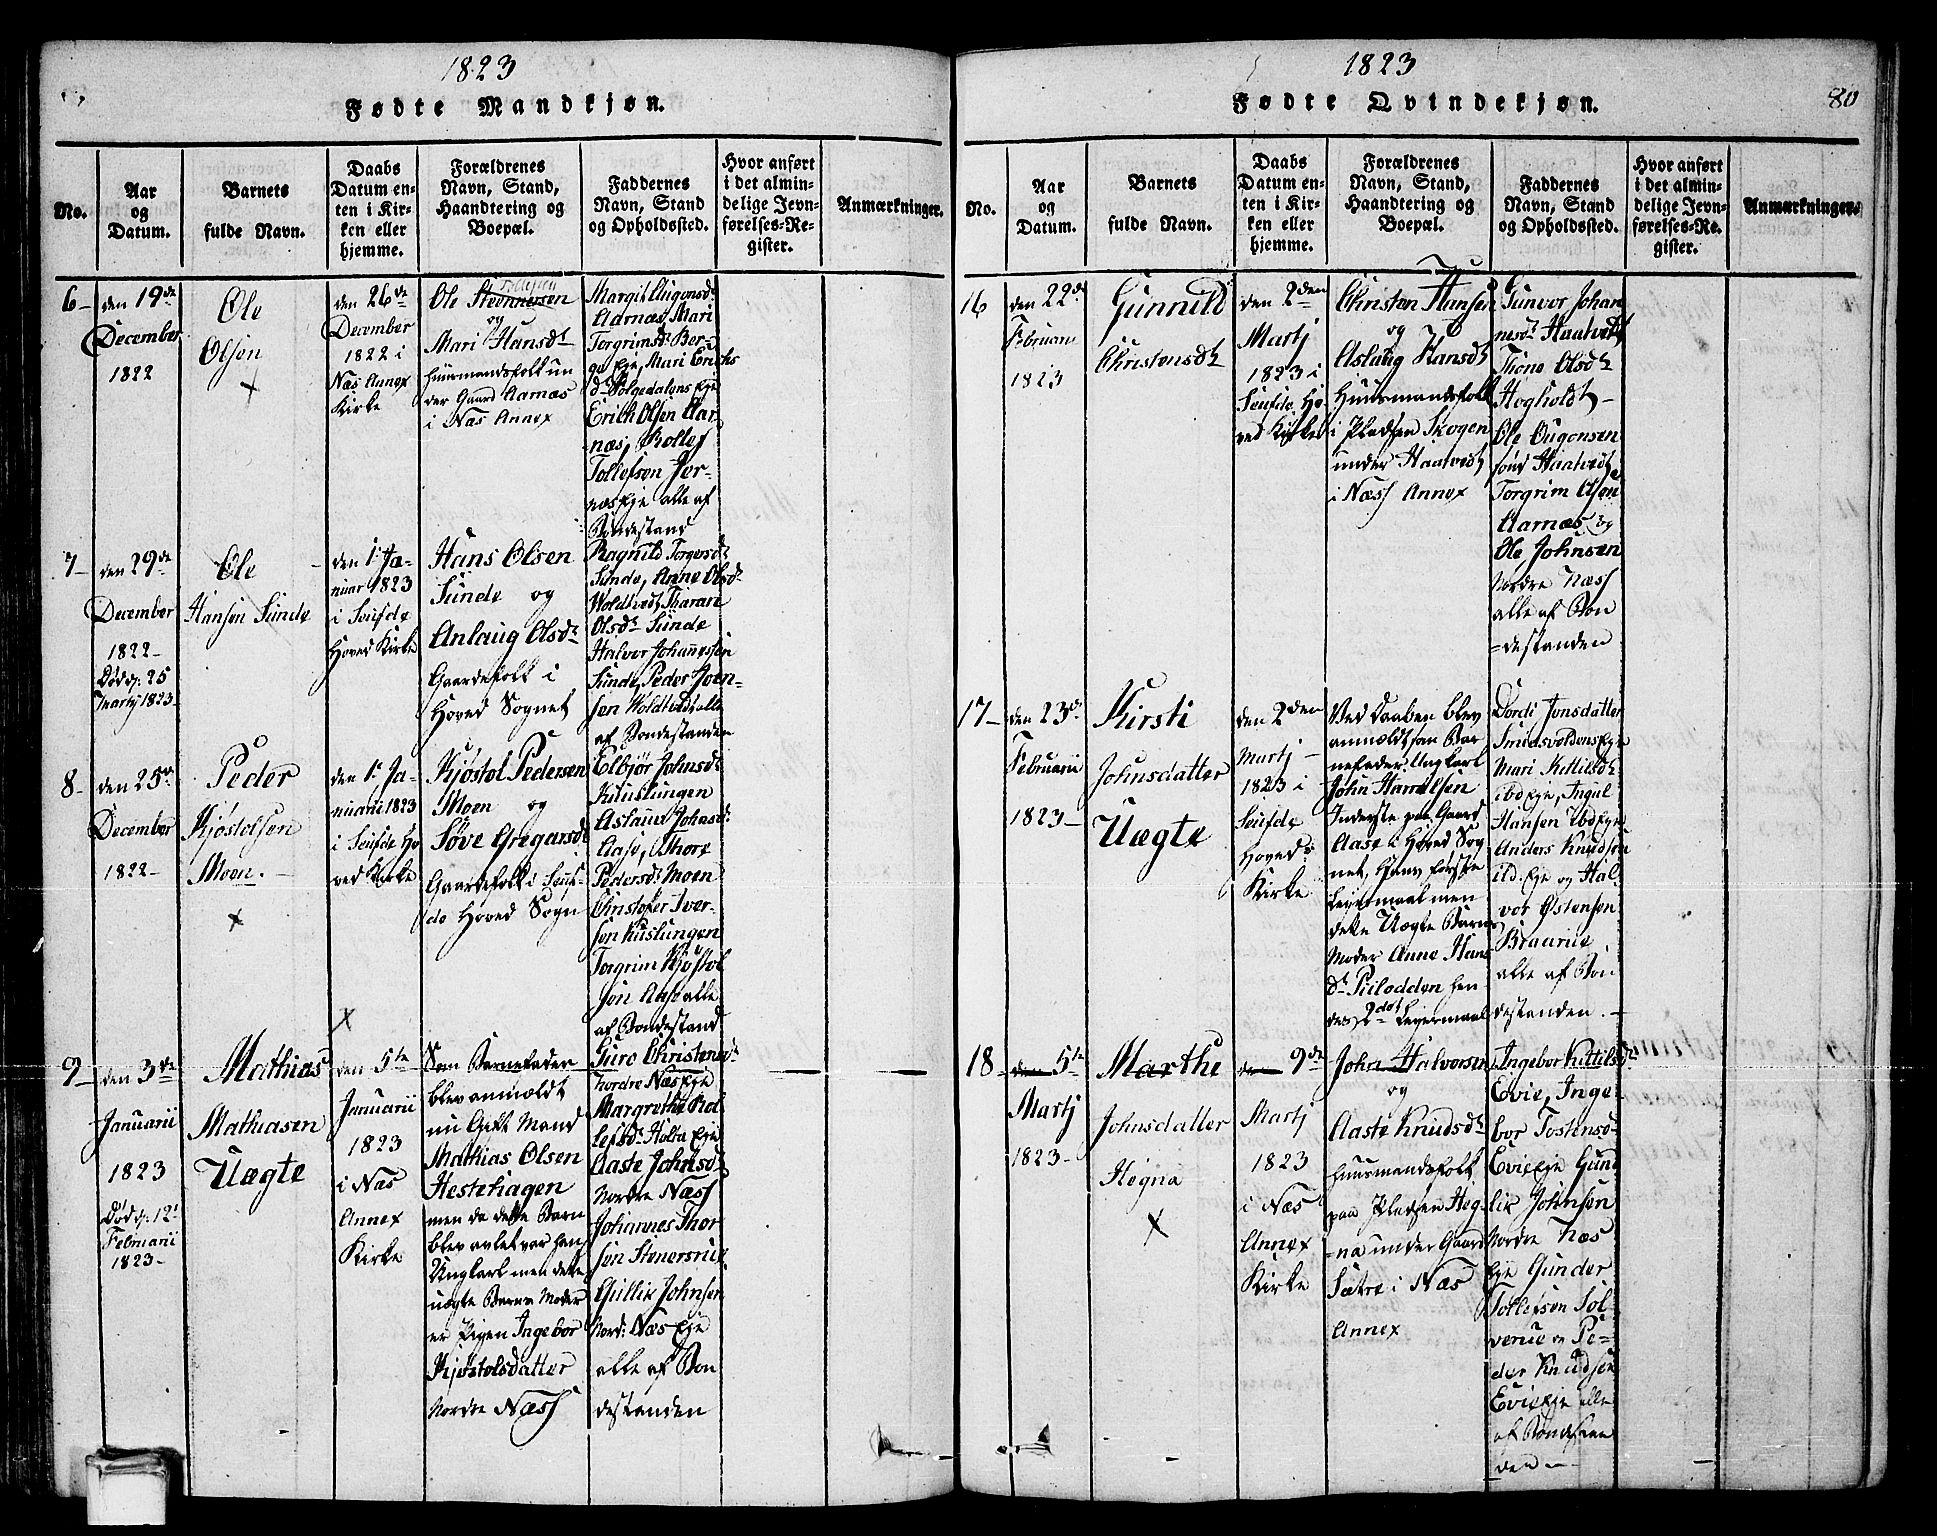 1823
Fødte Mandkjøn.
No.
Aar
og
Datum.
Barnets
fulde Navn.
Daabs
Datum en-
ten i Kir-
ken eller
hjemme.
Forældrenes
Navn, Stand,
Haandtering og
Boepæl.
Faddernes
Navn, Stand
og Opholdssted.
Hvor anført
i det almin-
delige Jevn-
førelses-Re-
gister.
Anmærkninger.
6
den 19de
December
1822
Ole
Olsen
den 26de
December
1822 i
Næs Annex
Kirke
Ole
og
Mari Hansdr
Huusmandsfolk un
der Gaard Aarnæs
i Næs Annex
Margit Augonsdr
Aarnæs, Mari
Torgrimsdr Ber-
ge Eje, Mari Erichs
dr Bølgedalens Eje
Erich Olsen Aar
næs, Rollef
Tollefsen Jer-
næs Eje alle af
Bondestand
7
den 29de
December
1822
Død d. 25
Martj 1823
Ole
Hansen Sunde
den 1. Ja-
nuar 1823
i Seufde
Hoved Kirke
Hans Olsen
Sunde og
Anlaug Olsdr
Gaardefolk i
Hoved Sognet
Ragnild Torgersdr
Sunde, Anne Olsdr
Woldtvedt, Tharan
Olsdr Sunde
Halvor Johannessen
Sunde, Peder Joen-
sen Woldtvedt alle
af Bondestanden
8
den 25de
December
1822
Peder
Kjøstolsen
Moen.
den 1. Ja-
nuarii 1823
i Seufde Ho
ved Kirke
Kjøstol Pedersen
Moen og
Søve Gregarsdr
Gaardefolk i Seuf-
de Hoved Sogn
Elbjør Johnsdr
Kuuslungen
Aslaug Johnsdr
Aase, Thore
Pedersdr Moen
Christofer Iver-
sen Kuslungen
Torgrim Kjøstol
sen Aase alle
af Bondestand
9
den 3de
Januarii
1823
Død d. 12
Februarii
1823
Mathias
Mathiasen
Uægte
den 5te
Januarii
1823
i Næs
Annex
Kirke
Som Barnefader
blev anmeldt
nu Gift Mand
Mathias Olsen
Hestehagen
men da dette Barn
blev avlet var han
Ungkarl men dette
uægte Barns Moder
er Pigen Ingebor
Kjøstolsdatter
Nordre Næss
Guro Christensdr
Nordre Næs Eje
Margrethe Rol
lefsdr Holta Eje
Aaste Johnsdr
Nordre Næss
Johannes Thor
sen Stenersrue
Gullik Johnsen
Nord: Næs Eje
alle af Bon
destanden
1823
80
Fødte Qvindekjøn.
No.
Aar
og
Datum.
Barnets
fulde Navn.
Daabs
Datum en-
ten i Kir-
ken eller
hjemme.
Forældrenes
Navn, Stand,
Haandtering og
Boepæl.
Faddernes
Navn, Stand
og Opholdssted.
Hvor anført
i det almin-
delige Jevn-
førelses-Re-
gister.
Anmærkninger.
16
den 22de
Februarii
1823
Gunnild
Christensdr
den 2den
Martj
1823 i
Seufde Ho
ved Kirke
Christen Hansen
og
Aslaug Hansdr
Huusmandsfolk
i Pladsen Skogen
under Haatvedt
i Næss Annex
Gunvor Johan
nesdr Haatvedt
Thone Olsdr
Høgholdt
Ole Augonsen
Haatvedt
Torgrim Olsen
Aarnæs og
Ole Johnsen
Nordre Næss
alle af Bon
destanden
17
den 23de
Februarii
1823
Kirsti
Johnsdatter
Uægte
den 2den
Martj
1823 i
Seufde
Hoved
Kirke
Ved Daaben blev
anmeldt som Bar
nefader Ungkarl
John Haraldsen
Inderste paa Gaard
Aase i Hoved Sog
net, hans første
Leyermaal men
dette Uægte Barns
Moder Anne Hans
dr Piilodden hen
des 2det Leyermaal
Dordi Jonsdatter
Smedsvoldens Eje
Mari Kittilsdr
ibd Eje, Ingul
Hansen Ibd Eje
Anders Knudsen
ibd. Eje og Hal
vor Østensen
Braarue
alle af Bon
destanden.
18
den 5te
Martj
1823
Marthe
Johnsdatter
Hegna
den 9de
Martj
1823
i Næs
Annex
Kirke
John Halvorsen
og
Aaste Knudsdr
Huusmandsfolk
paa Pladsen Heg-
na under Gaard
Sætre i Næs
Annex
Ingebor Kittilsdr
Evie, Inge-
bor Tostensdr
Evie Eje Gul
lik Johnsen
Nordre Næs
Eje Gunder
Tollefsen Sol-
verue og Pe-
der Knudsen
Evie Eje alle
af Bondestan
den